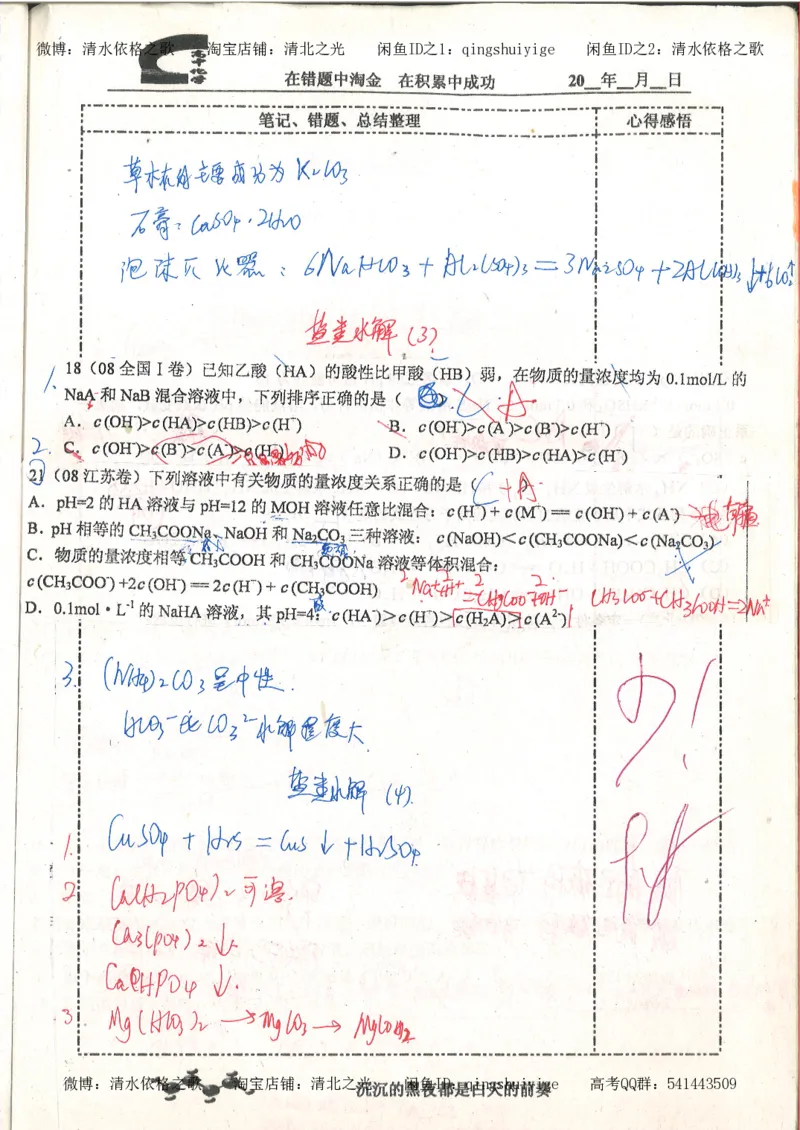 微博：清水依格之歌 淘宝店铺：清北之光 闲鱼ID之1：qingshuiyige 闲鱼ID之2：清水依格之歌
高中化学
在错题中淘金 在积累中成功 20__年__月__日
笔记、错题、总结整理 心得感悟
草木灰的主要成分为 K₂CO₃
石膏：CaSO₄·2H₂O
泡沫灭火器：6NaHCO₃ + Al₂(SO₄)₃ = 3Na₂SO₄ + 2Al(OH)₃↓ + 6CO₂↑
盐类水解 (3)
1. 18（08 全国 I 卷）已知乙酸（HA）的酸性比甲酸（HB）弱，在物质的量浓度均为 0.1mol/L 的
NaA 和 NaB 混合溶液中，下列排序正确的是（ ） A
A．c(OH⁻)>c(HA)>c(HB)>c(H⁺) B．c(OH⁻)>c(A⁻)>c(B⁻)>c(H⁺)
C．c(OH⁻)>c(B⁻)>c(A⁻)>c(H⁺) D．c(OH⁻)>c(HB)>c(HA)>c(H⁺)
2.
21（08 江苏卷）下列溶液中有关物质的量浓度关系正确的是（ C+A ）
A．pH=2 的 HA 溶液与 pH=12 的 MOH 溶液任意比混合：c(H⁺)+c(M⁺)══c(OH⁻)+c(A⁻) 电荷守恒
B．pH 相等的 CH₃COONa、NaOH 和 Na₂CO₃ 三种溶液：c(NaOH)＜c(CH₃COONa)＜c(Na₂CO₃)
C．物质的量浓度相等 CH₃COOH 和 CH₃COONa 溶液等体积混合：
c(CH₃COO⁻)+2c(OH⁻)══2c(H⁺)+c(CH₃COOH)
2Na⁺+2H⁺=2CH₃COO⁻+2OH⁻ CH₃COO⁻+CH₃COOH=2Na⁺
D．0.1mol·L⁻¹ 的 NaHA 溶液，其 pH=4：c(HA⁻)＞c(H⁺)＞c(H₂A)＞c(A²⁻)
3. (NH₄)₂CO₃ 呈中性.
HCO₃⁻比 CO₃²⁻水解程度大
盐类水解 (4).
1. CuSO₄ + H₂S = CuS↓ + H₂SO₄
2 Ca(H₂PO₄)₂ 可溶.
Ca₃(PO₄)₂ ↓.
CaHPO₄ ↓.
3. Mg(HCO₃)₂ → MgCO₃ → Mg(OH)₂
微博：清水依格之歌 淘宝店铺：清北之光 闲鱼ID：qingshuiyige 高考QQ群：541443509
沉沉的黑夜都是白天的前奏